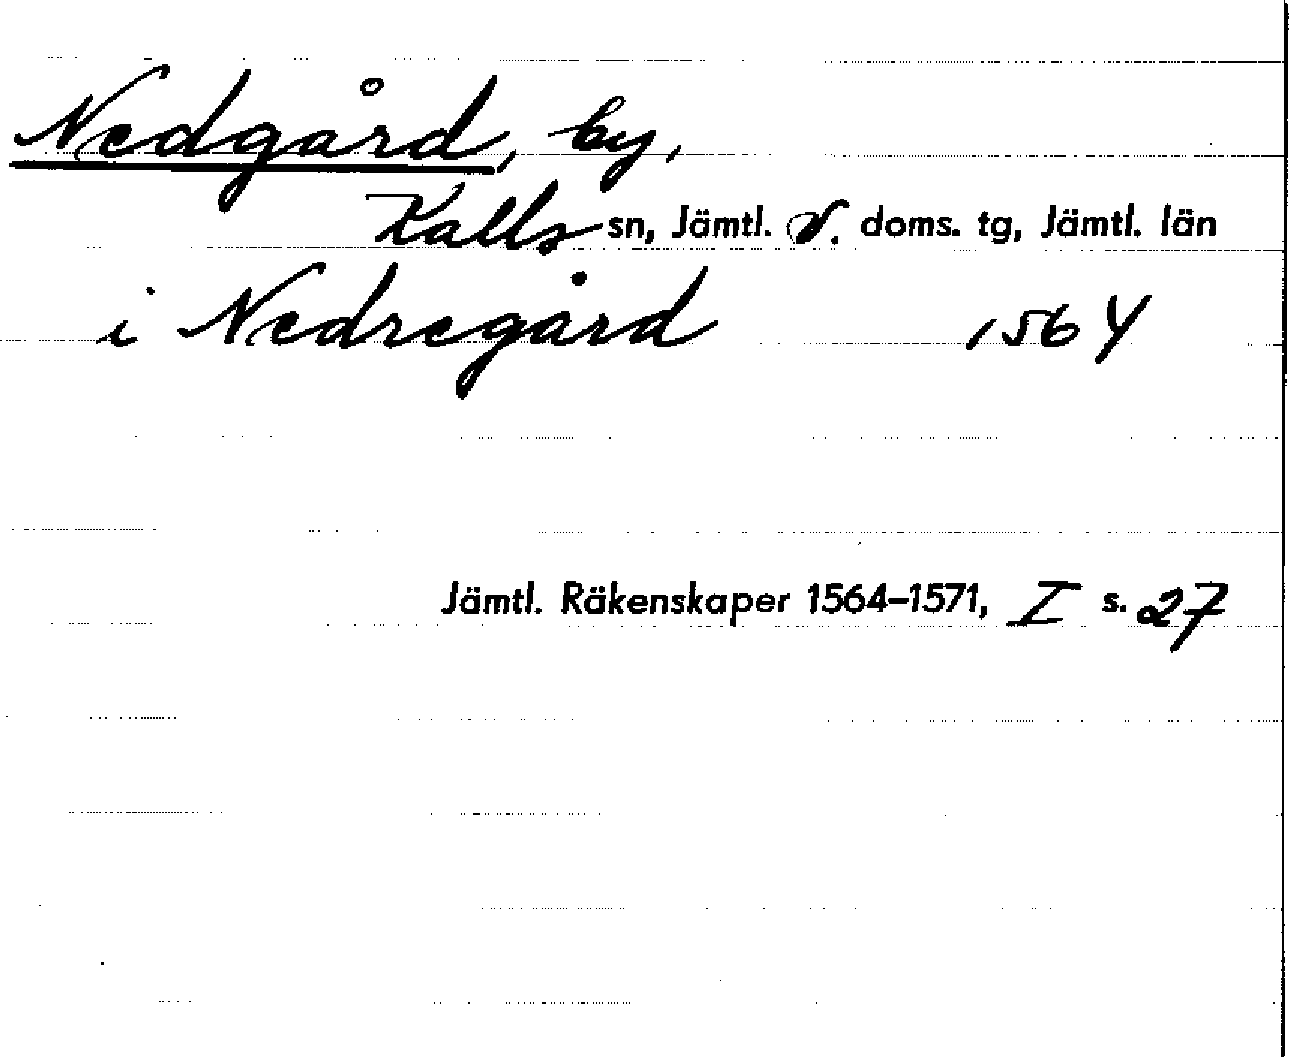 Nedgård, by,
Kalls sn, Jämtl. V. doms. tg, Jämtl. län
i Nedregård 1564
Jämtl. Räkenskaper 1564–1571, I s. 27